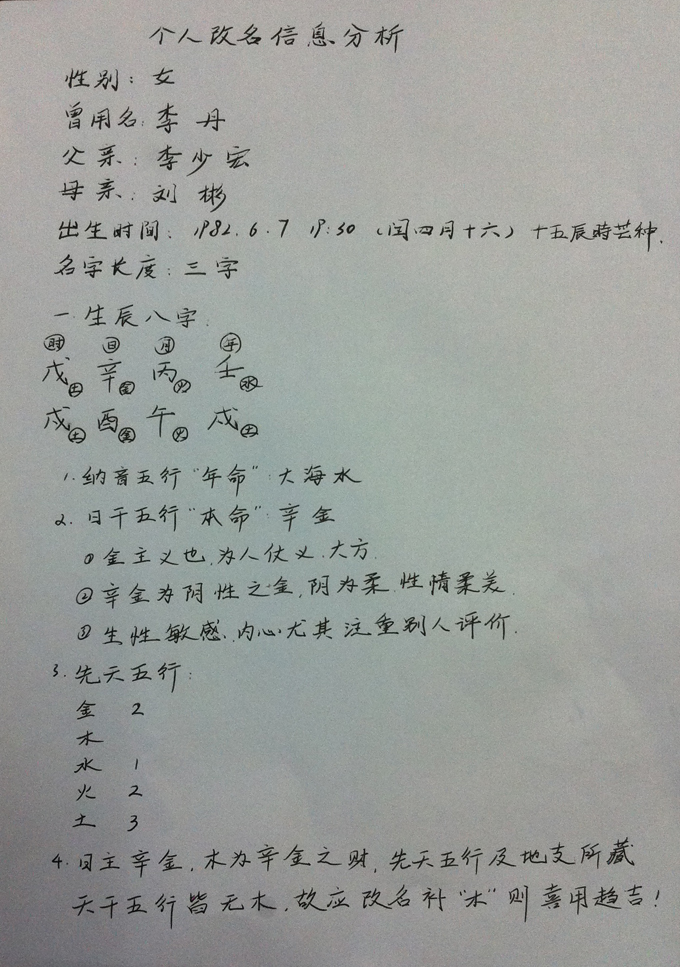 个人改名信息分析
性别：女
曾用名：李丹
父亲：李少宏
母亲：刘彬
出生时间：1982.6.7 19:30（闰四月十六）十五辰時芒种.
名字长度：三字
一.生辰八字.
时 日 月 年
戊土 辛金 丙火 壬水
戌土 酉金 午火 戌土
1.纳音五行“年命”：大海水
2.日干五行“本命”：辛金
①金主义也,为人仗义.大方.
②辛金为阴性之金,阴为柔.性情柔美.
③生性敏感.内心尤其注重别人评价.
3.先天五行：
金 2
木
水 1
火 2
土 3
4.日主辛金,木为辛金之财,先天五行及地支所藏
天干五行皆无木.故应改名补“木”则喜用趋吉！